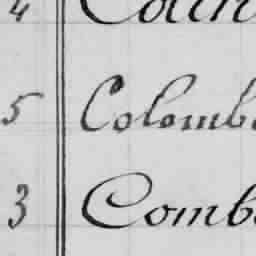 4 Coun
5 Colomb
3 Comb